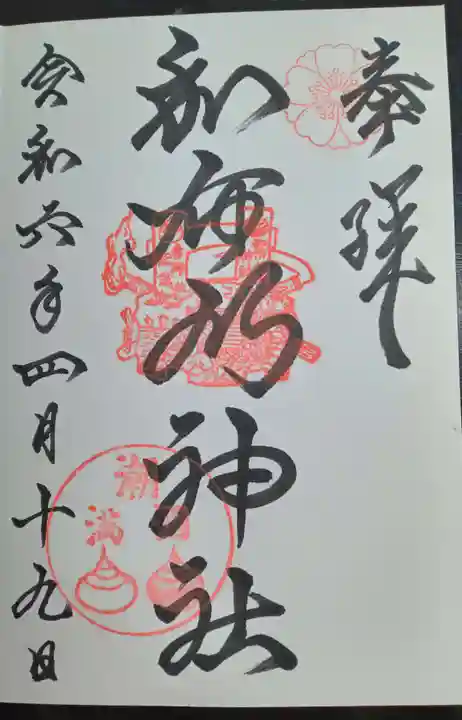 奉拝
和布刈神社
令和六年四月十九日
潮
満